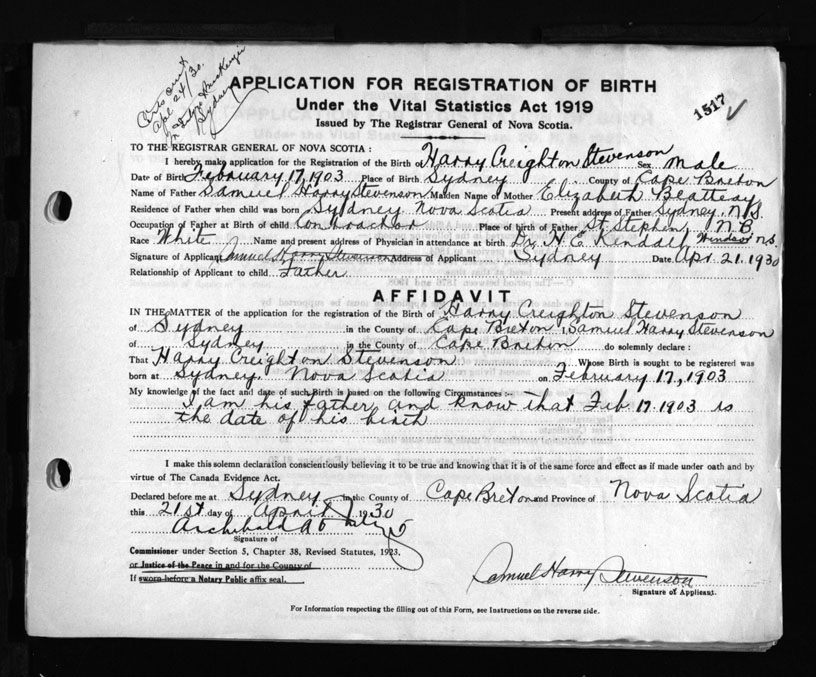 Apl 24/30.
Sydney
APPLICATION FOR REGISTRATION OF BIRTH
Under the Vital Statistics Act 1919
Issued by The Registrar General of Nova Scotia.
1517
TO THE REGISTRAR GENERAL OF NOVA SCOTIA :
I hereby make application for the Registration of the Birth of Harry Creighton Stevenson Sex Male
Date of Birth February 17, 1903 Place of Birth Sydney County of Cape Breton
Name of Father Samuel Harry Stevenson Maiden Name of Mother Elizabeth Beatteay
Residence of Father when child was born Sydney Nova Scotia Present address of Father Sydney, N.S.
Occupation of Father at Birth of child Contractor Place of birth of Father St. Stephen, N.B.
Race White Name and present address of Physician in attendance at birth Dr. H. E. Kendall Windsor N.S.
Signature of Applicant Samuel Harry Stevenson Address of Applicant Sydney Date Apr. 21. 1930
Relationship of Applicant to child Father
AFFIDAVIT
IN THE MATTER of the application for the registration of the Birth of Harry Creighton Stevenson
of Sydney in the County of Cape Breton I, Samuel Harry Stevenson
of Sydney in the County of Cape Breton do solemnly declare :
That Harry Creighton Stevenson Whose Birth is sought to be registered was
born at Sydney, Nova Scotia on February 17, 1903
My knowledge of the fact and date of such Birth is based on the following Circumstances :-
I am his father and know that Feb. 17. 1903 is
the date of his birth
I make this solemn declaration conscientiously believing it to be true and knowing that it is of the same force and effect as if made under oath and by
virtue of The Canada Evidence Act.
Declared before me at Sydney in the County of Cape Breton and Province of Nova Scotia
this 21st day of April 1930
Archibald
Signature of
Commissioner under Section 5, Chapter 38, Revised Statutes, 1923.
or Justice of the Peace in and for the County of
If sworn before a Notary Public affix seal.
Samuel Harry Stevenson
Signature of Applicant.
For Information respecting the filling out of this Form, see Instructions on the reverse side.